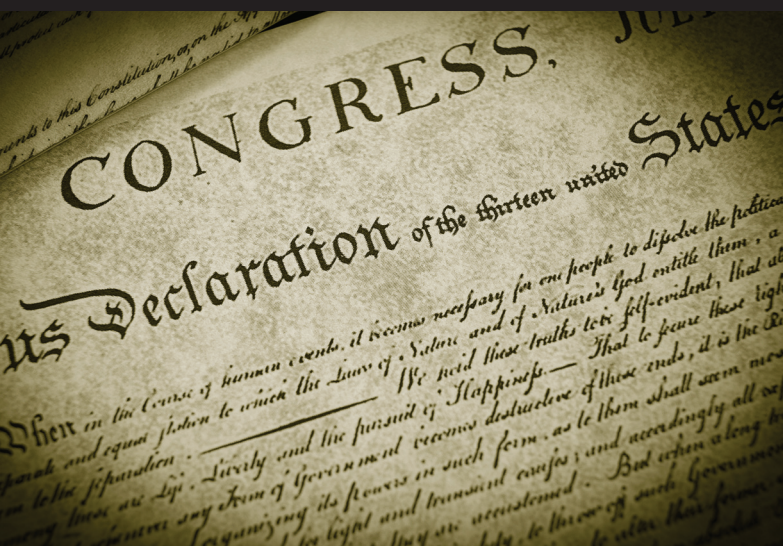 this Constitution, or, on the
CONGRESS, JUL
us Declaration of the thirteen united States
When in the Course of human events, it becomes necessary for one people to dissolve the politica
and equal station to which the Laws of Nature and of Nature's God entitle them, a
to the separation. We hold these truths to be self-evident, that al
these are Life, Liberty and the pursuit of Happiness. — That to secure these righ
any Form of Government becomes destructive of these ends, it is the Ri
organizing its powers in such form, as to them shall seem mos
for light and transient causes; and accordingly all
they are accustomed. But when a long t
to throw off such Government
to alter their former